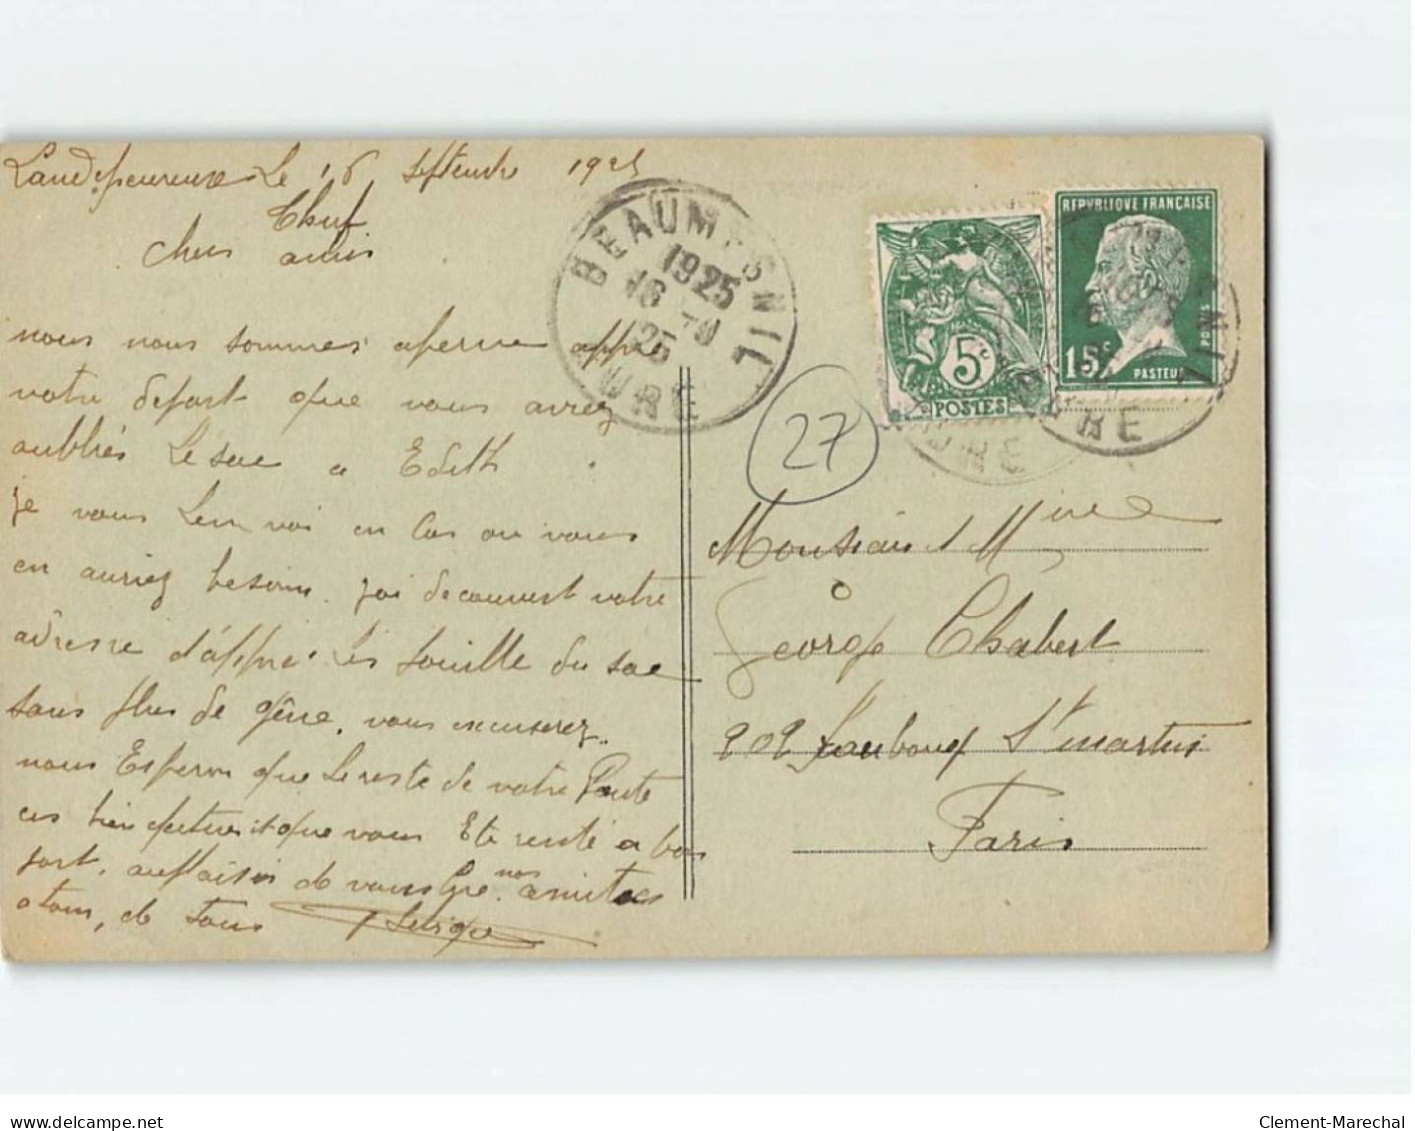 Landepereuse Le 16 septembre 1925
Chers amis
nous nous sommes aperçu
votre départ que vous aviez
oubliés Le sac a Edith
je vous Lenvoi en Cas ou vous
en auriez besoin. jai découvert votre
adresse d'appre Les fouille du sac
sans plus de gêne. vous excuserez.
nous Esperon que Le reste de votre Route
bien que vous Ete rentré a bon
port. au plaisir de vous Lire. nos amitiées
a tous, de tous
BEAUMESNIL
1925
16 - 9
25
EURE
REPUBLIQUE FRANÇAISE
15c
PASTEUR
POSTES
5c
POSTES
EURE
27
Monsieur M me
George Chabert
202 Faubourg St martin
Paris
delcampe.net
Clement-Marechal